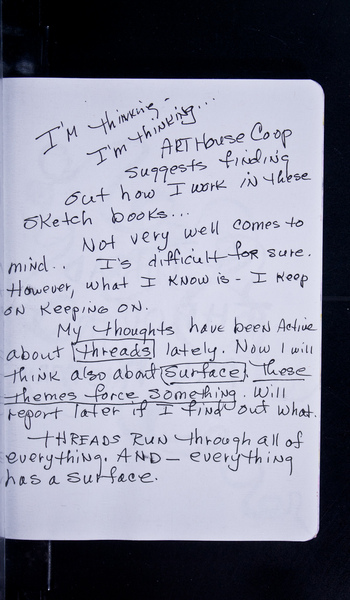 I'M thinking-
I'm thinking...
ARTHouse Coop
suggests finding
out how I work in these
sketch books...
Not very well comes to
mind.. I's difficult for sure.
However, what I know is - I keep
on keeping on.
My thoughts have been active
about threads lately. Now I will
think also about surface. These
themes force something. Will
report later if I find out what.
THREADS RUN through all of
everything. AND - everything
has a surface.